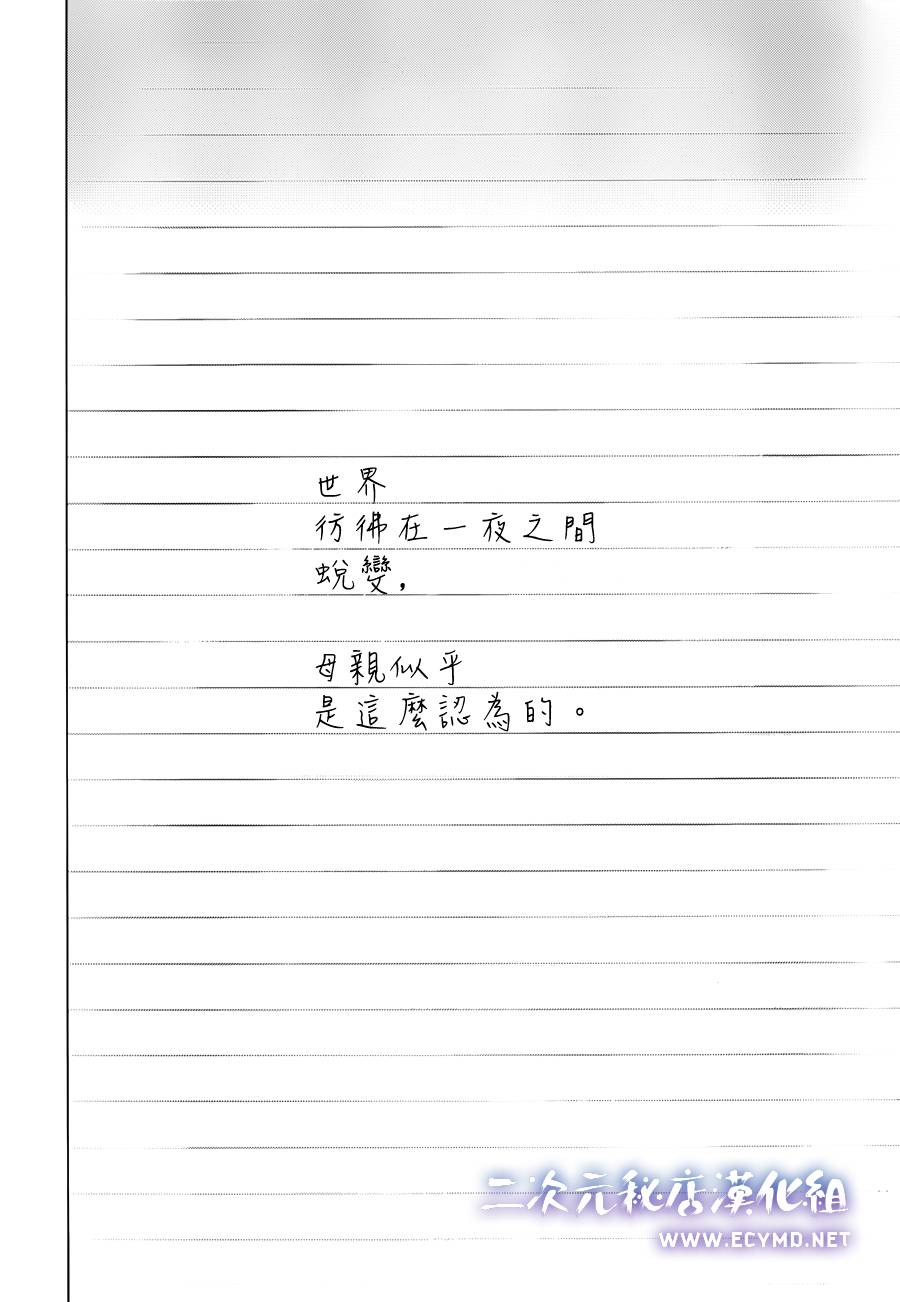 世界
彷彿在一夜之間
蛻變，
母親似乎
是這麼認為的。
二次元秘店漢化組
WWW.ECYMD.NET